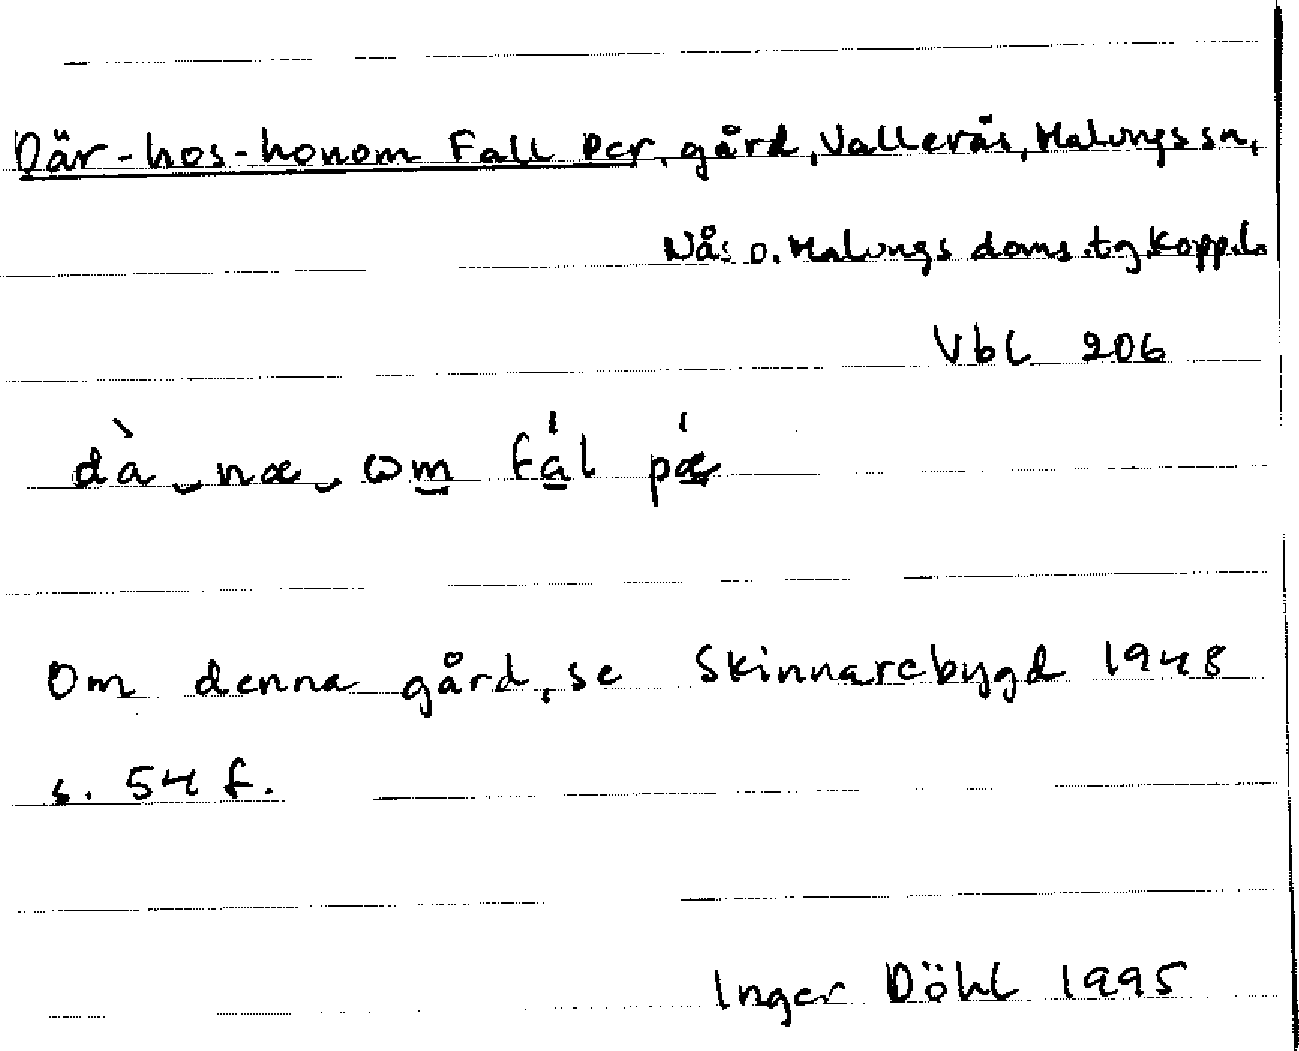 Där-hos-honom Fall Per, gård, Vallerås, Malungs sn,
Nås o. Malungs doms.tg Kopp.l.
Vbl 206
dà‿næ‿ωm fál pǽ
Om denna gård, se Skinnarebygd 1948
s. 54 f.
Inger Döhl 1995